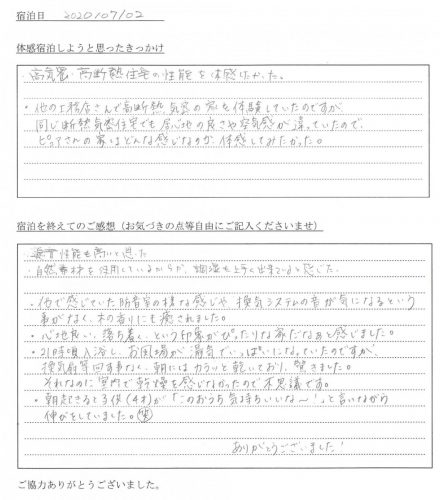 宿泊日 2020/07/02
体感宿泊しようと思ったきっかけ
・高気密・高断熱住宅の性能を体感したかった。
・他の工務店さんで高断熱気密の家を体験していたのですが
同じ断熱気密住宅でも居心地の良さや空気感が違っていたので、
ピュアさんの家はどんな感じなのか体感してみたかった。
宿泊を終えてのご感想（お気づきの点等自由にご記入くださいませ）
・遮音性能も高いと思った
・自然素材を使用しているからか、調湿も上手く出来ていると感じた。
・他で感じていた防音室の様な感じや、換気システムの音が気になるという
事がなく、木の香りにも癒されました。
・心地良い、落ち着く、という印象がぴったりな家だなぁと感じました。
・21時頃入浴し、お風呂場が湯気でいっぱいになっていたのですが、
換気扇等回す事なく、朝にはカラッと乾いており、驚きました。
それなのに室内で乾燥を感じなかったので不思議です。
・朝起きると子供(4才)が「このおうち気持ちいいな〜！」と言いながら
伸びをしていました。(笑)
ありがとうございました！
ご協力ありがとうございました。